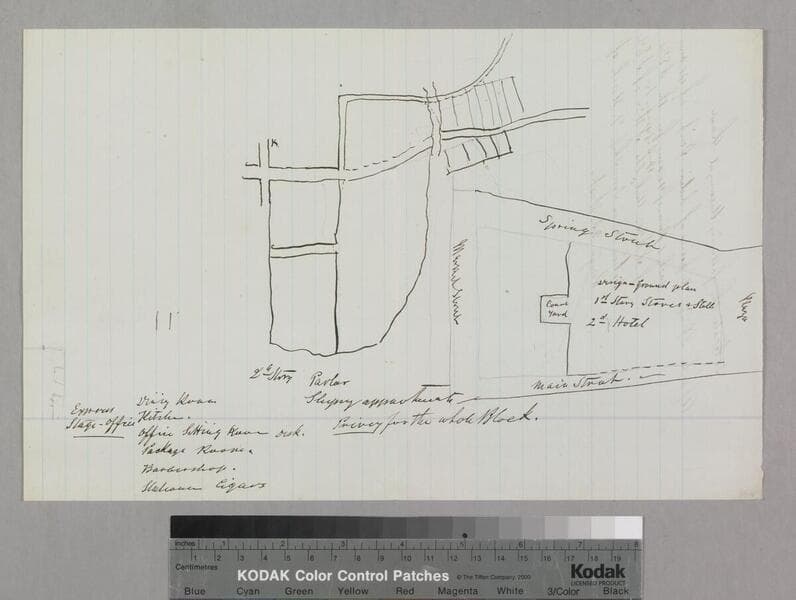 K
Spring Street
Market Street
design-ground plan
1st Story Stores & Stalls
2d Hotel
Court
Yard
Plaza
Main Street.
2d Story Parlor
Sleeping appartments
Privey for the whole Block.
Express
Stage-office
Room
Kitchen.
Office Sitting Room desk.
Package Room.
Barbershop.
Cigars
inches 1 2 3 4 5 6 7 8
Centimetres 1 2 3 4 5 6 7 8 9 10 11 12 13 14 15 16 17 18 19
KODAK Color Control Patches © The Tiffen Company, 2000
Kodak
LICENSED PRODUCT
Blue Cyan Green Yellow Red Magenta White 3/Color Black